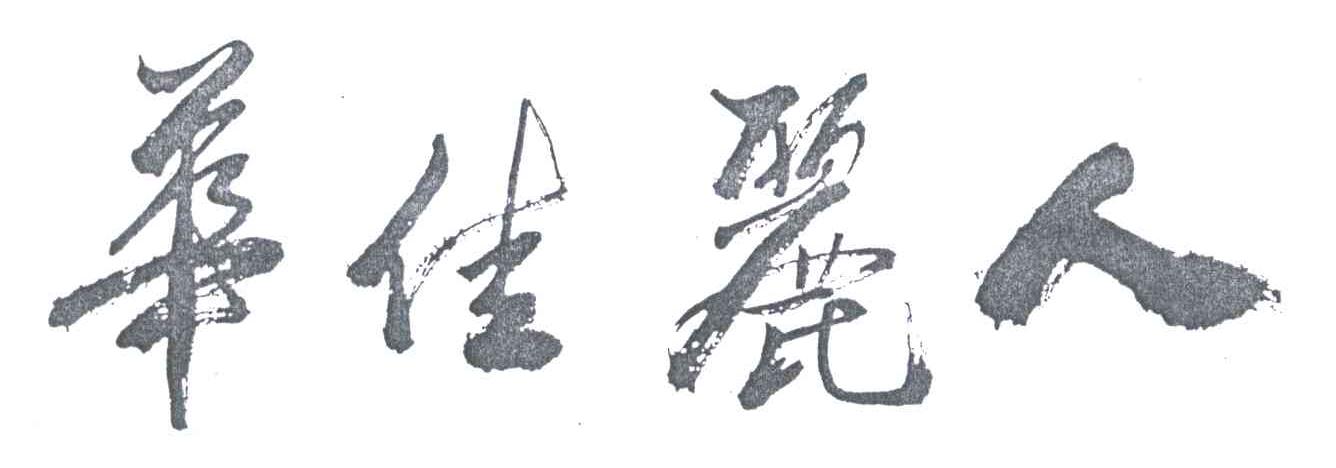 華佳麗人